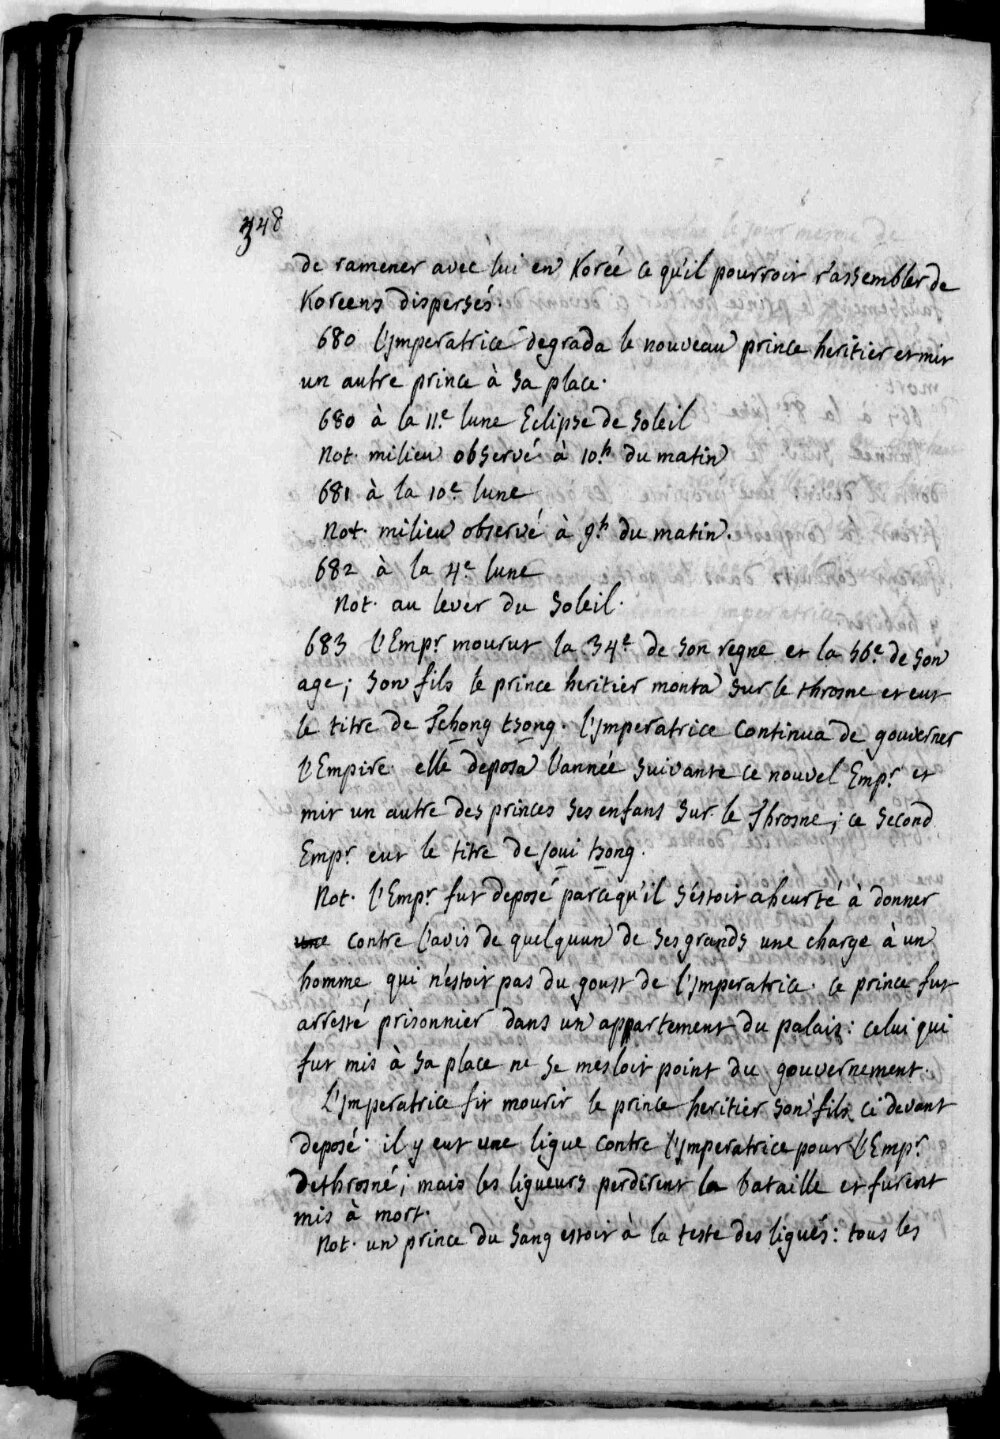 348
de ramener avec lui en Korée ce qu'il pourroit r'assembler de
Koreens dispersés
680 l'Imperatrice degrada le nouveau prince heritier et mit
un autre prince à sa place.
680 à la 11.e lune Eclipse de soleil
Not. milieu observé à 10.h du matin
681 à la 10.e lune
Not. milieu observé à 9.h du matin.
682 à la 4.e lune
Not. au lever du soleil.
683 l'Emp.r mourut la 34.e de son regne et la 56.e de son
age; son fils le prince heritier monta sur le throsne et eut
le titre de Tchong tsong. l'Imperatrice continua de gouverner
l'Empire. elle deposa l'année suivante ce nouvel Emp.r et
mit un autre des princes ses enfans sur le Throsne; ce second
Emp.r eut le titre de joui tsong.
Not. l'Emp.r fut deposé parcequ'il s'estoit aheurté à donner
une contre l'avis de quelquun de ses grands une charge à un
homme qui n'estoit pas du goust de l'Imperatrice. ce prince fut
arresté prisonnier dans un appartement du palais: celui qui
fut mis à sa place ne se mesloit point du gouvernement.
L'Imperatrice fit mourir le prince heritier son fils ci devant
deposé. il y eut une ligue contre l'Imperatrice pour l'Emp.r
dethrosné; mais les ligueurs perdirent la bataille et furent
mis à mort.
Not. un prince du sang estoit à la teste des ligués: tous les